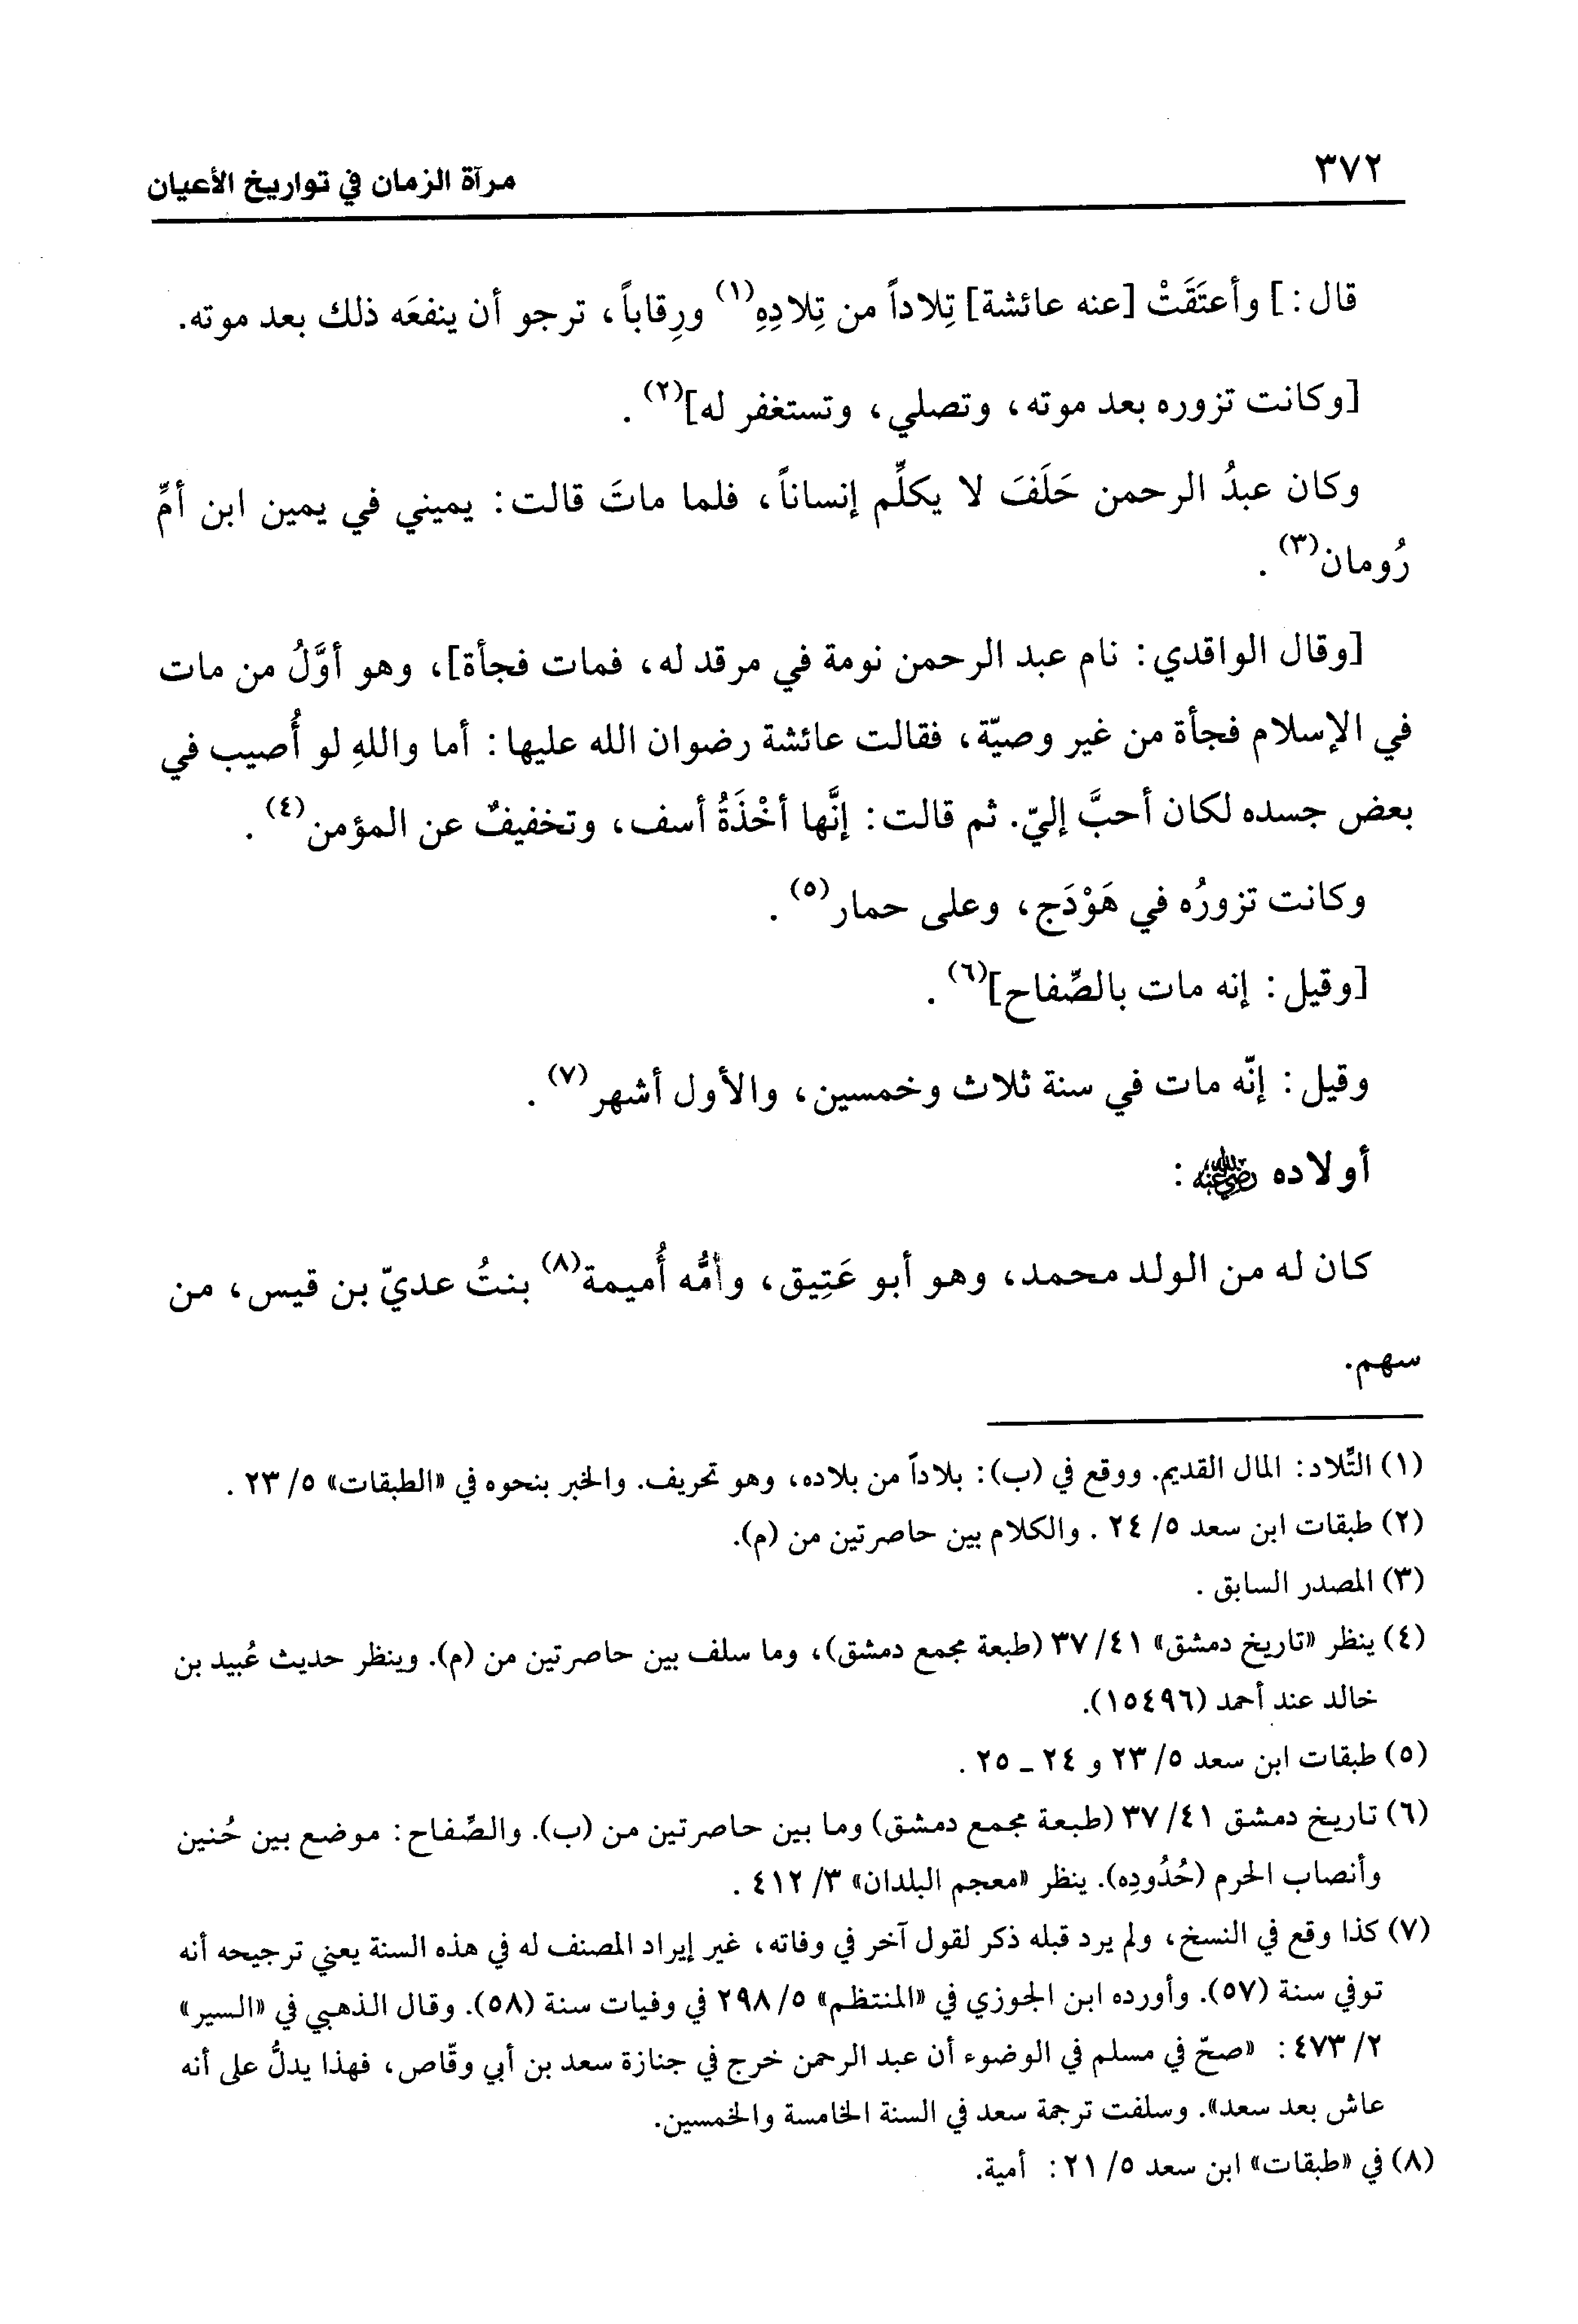 ٣٧٢
مرآة الزمان في تواريخ الأعيان
قال: ] وأعتَقَتْ [عنه عائشة] تِلاداً من تِلادِهِ(١) ورِقاباً، ترجو أن ينفعَه ذلك بعد موته.
[وكانت تزوره بعد موته، وتصلي، وتستغفر له](٢) .
وكان عبدُ الرحمن حَلَفَ لا يكلِّم إنساناً، فلما ماتَ قالت: يميني في يمين ابن أمِّ
رُومان(٣) .
[وقال الواقدي: نام عبد الرحمن نومة في مرقد له، فمات فجأة]، وهو أوَّلُ من مات
في الإسلام فجأة من غير وصيّة، فقالت عائشة رضوان الله عليها: أما واللهِ لو أُصيب في
بعض جسده لكان أحبَّ إليّ. ثم قالت: إنَّها أخْذَةُ أسف، وتخفيفٌ عن المؤمن(٤) .
وكانت تزورُه في هَوْدَج، وعلى حمار(٥) .
[وقيل: إنه مات بالصِّفاح](٦) .
وقيل: إنّه مات في سنة ثلاث وخمسين، والأول أشهر(٧) .
أولاده رضي الله عنه :
كان له من الولد محمد، وهو أبو عَتِيق، وأمُّه أُميمة(٨) بنتُ عديّ بن قيس، من
سهم.
(١) التِّلاد: المال القديم. ووقع في (ب): بلاداً من بلاده، وهو تحريف. والخبر بنحوه في «الطبقات» ٥/ ٢٣ .
(٢) طبقات ابن سعد ٥/ ٢٤ . والكلام بين حاصرتين من (م).
(٣) المصدر السابق .
(٤) ينظر «تاريخ دمشق» ٤١/ ٣٧ (طبعة مجمع دمشق)، وما سلف بين حاصرتين من (م). وينظر حديث عُبيد بن
خالد عند أحمد (١٥٤٩٦).
(٥) طبقات ابن سعد ٥/ ٢٣ و ٢٤ ـ ٢٥ .
(٦) تاريخ دمشق ٤١/ ٣٧ (طبعة مجمع دمشق) وما بين حاصرتين من (ب). والصِّفاح: موضع بين حُنين
وأنصاب الحرم (حُدُودِه). ينظر «معجم البلدان» ٣/ ٤١٢ .
(٧) كذا وقع في النسخ، ولم يرد قبله ذكر لقول آخر في وفاته، غير إيراد المصنف له في هذه السنة يعني ترجيحه أنه
توفي سنة (٥٧). وأورده ابن الجوزي في «المنتظم» ٥/ ٢٩٨ في وفيات سنة (٥٨). وقال الذهبي في «السير»
٢/ ٤٧٣: «صحّ في مسلم في الوضوء أن عبد الرحمن خرج في جنازة سعد بن أبي وقّاص، فهذا يدلُّ على أنه
عاش بعد سعد». وسلفت ترجمة سعد في السنة الخامسة والخمسين.
(٨) في «طبقات» ابن سعد ٥/ ٢١: أمية.